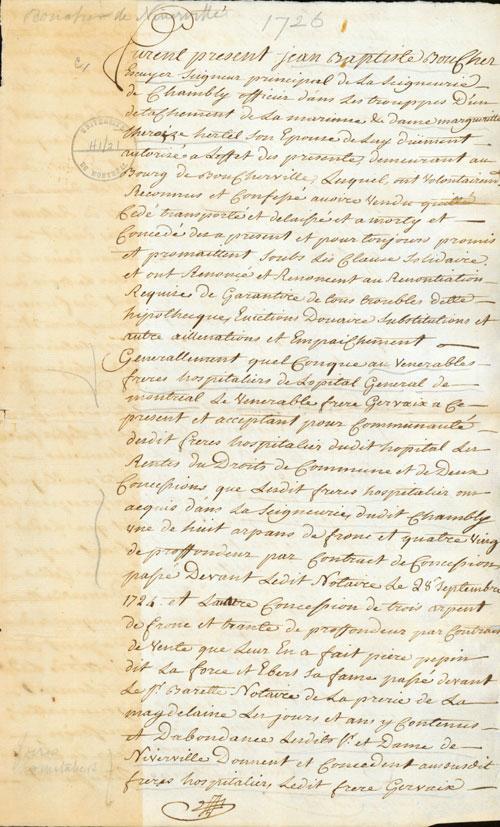 Bonafrie de Niverville
1726
C/
UNIVERSITÉ
H1/21
DE MONTRÉAL
Furent present Jean Baptiste Boucher
Ecuyer Seigneur principal de la Seigneurie
de Chambly officier dans les trouppes d'un
detachement de la marinne & dame margueritte
thereize hertel son Epouse de Luy duëment
autorisés a Leffet des presente, demeurant au
Bourg de Boucherville, Lesquel, ont volontairem
Reconnus et Confessé avoire vendu quitté
Cedé transporté et delaissé et amorty et
Concedé des a present et pour toujours promis
et promaittent soubs les Clause solidaire
et ont Renoncé et Renoncent au Renontiation
Requises de Garantire de tous troubles dette
hipotheeque, Evictions Douaire substitutions et
autre aillenations et Empaichement
Generallement quel Conque aux venerables
freres hospitaliers de Lopital General de
montreal Le venerable frere Gervaix a Ce
present et acceptant pour Communauté
desdit freres hospitalier dudit hopital Les
Rentes du Droits de Commune et de Deux
Concessions que Lesdit freres hospitalier ont
acquis dans La Seigneurie dudit Chambly
une de huit arpans de fronc et quatre ving
de proffondeur par Contract de Concession
passé Devant Ledit Notaire Le 28 Septembre
1724. et Lautre Concession de trois arpent
de fronc et trante de proffondeur par Contract
de Vente que Leur En a fait piere pepin
dit La force et Ebers sa fame passé devant
Le Sr. Barette Notaire de La prerie de La
magdelaine Les jours et ans y Contenus
et Dabondance Lesdits Sr. et Dame de
Niverville Donnent et Concedent aususdit
freres hospitaliers Ledit frere Gervaix